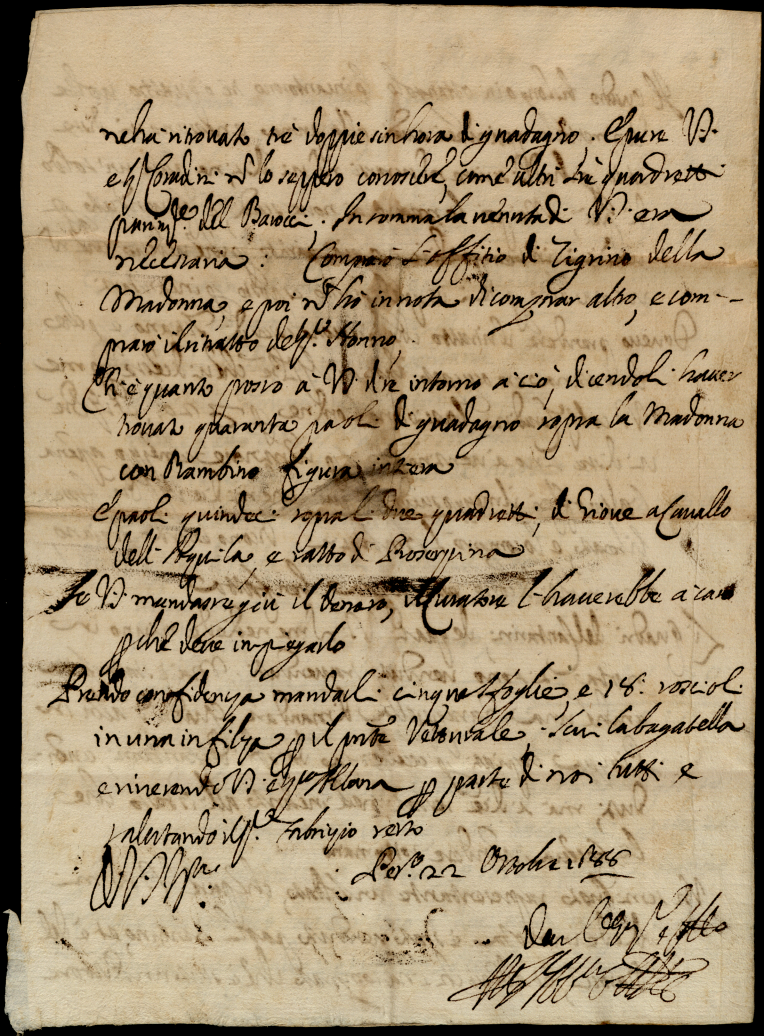 ne hà ritrovato trè doppie sin hora di guadagno. E pure V.S.
e li SS.ri Coradini nõ lo seppero conoscere, come altri trè quadretti
del Barocci. In somma la venuta di V.S. era
necessaria: Comparò l'offitio di Tigrino della
Madonna, e poi nõ hò in nota di comprar altro, e com-
prarò il ritratto del Sr. Nonno.
Ch'è quanto posso à V.S. dir intorno a ciò, dicendoli haver
trovato quaranta paoli di guadagno sopra la Madonna
con Bambino figura intera
E paoli quindeci sopra li due quadretti, di Giove a Cavallo
dell'Aquila, e ratto di Proserpina
Se V.S. mandasse giù il denaro, il Curatore l'haverebbe a caro
p che deve impiegarlo
Prendo confidenza mandarli cinque sfoglie, e 18. roscioli
in una infilza p il pnte Vetturale, Scusi la bagatella
e riverendo V.S. e p parte di noi tutti e
salutando il Sr. Fabrizio resto
D V.S.
22 Ottobre 1688